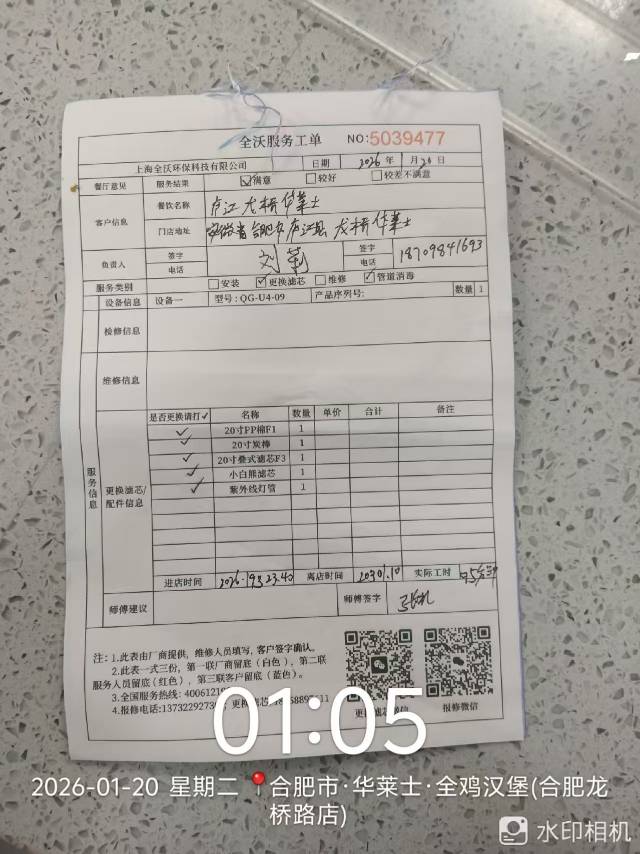 全沃服务工单 NO:5039477
上海全沃环保科技有限公司 日期 2026年 1月20日
餐厅意见 服务结果 ☑满意 □较好 □较差不满意
客户信息 餐饮名称 庐江龙桥华莱士
门店地址 安徽省合肥市庐江县龙桥华莱士
负责人 签字 电话 刘莉 签字 电话 18709841693
服务类别 □安装 ☑更换滤芯 □维修 ☑管道消毒
设备信息 设备一 型号:QG-U4-09 产品序列号: 数量 1
检修信息
维修信息
服务信息
更换滤芯/配件信息
是否更换请打✓ 名称 数量 单价 合计 备注
✓ 20寸PP棉F1 1
✓ 20寸炭棒 1
✓ 20寸叠式滤芯F3 1
✓ 小白熊滤芯 1
✓ 紫外线灯管 1
进店时间 离店时间 实际工时
师傅建议 师傅签字
注:1.此表由厂商提供,维修人员填写,客户签字确认。
2.此表一式三份,第一联厂商留底(白色),第二联
服务人员留底(红色),第三联客户留底(蓝色)。
3.全国服务热线:
4.报修电话: 更换滤芯
更换滤芯微信 报修微信
01:05
2026-01-20 星期二 合肥市·华莱士·全鸡汉堡(合肥龙
桥路店)
水印相机